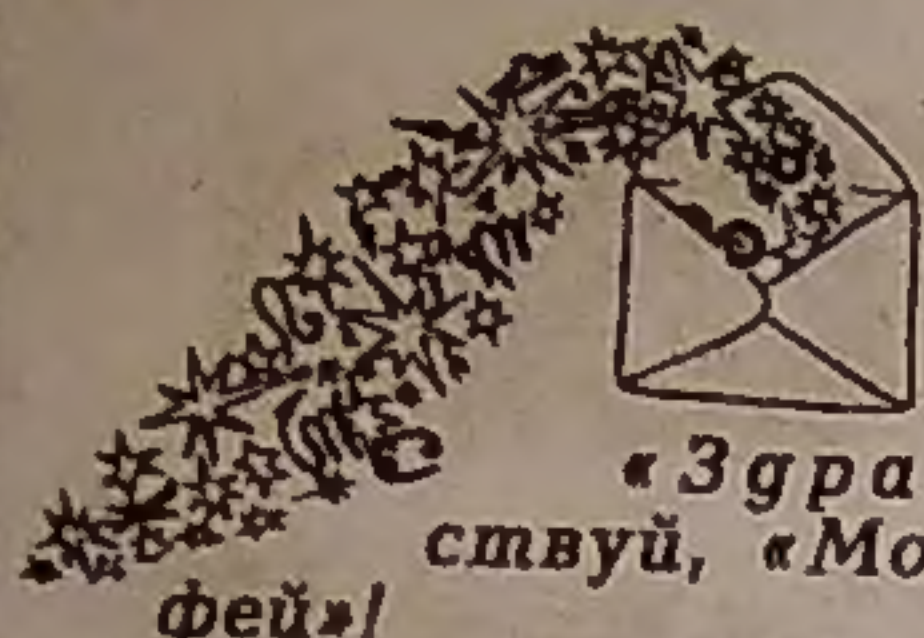 «Здра
ствуй, «Мо
фей»!